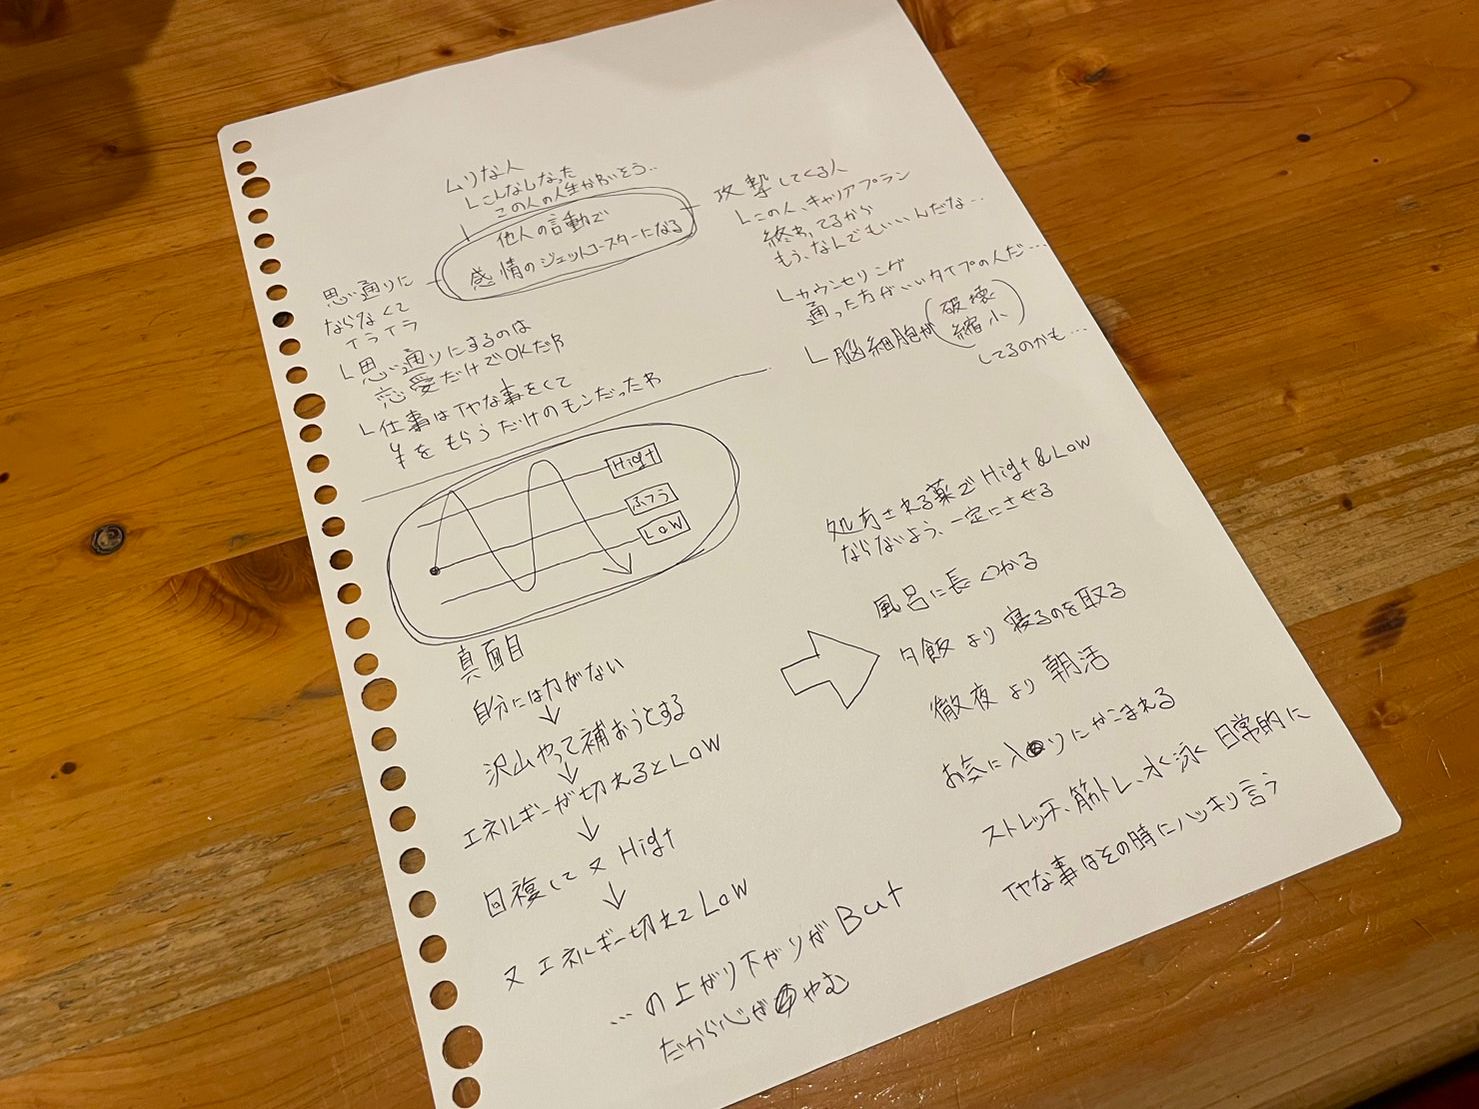 ムリな人
L こんなしなった
この人の人生かわいそう..
他人の言動で
感情のジェットコースターになる
攻撃してくる人
L この人、キャリアプラン
終わってるから
もう、なんでもいいんだな...
L カウンセリング
通った方がいいタイプの人だ...
L 脳細胞が(破壊
縮小)
してるのかも...
思い通りに
ならなくて
イライラ
L 思い通りにするのは
恋愛だけでOKだわ
L 仕事はイヤな事をして
¥をもらうだけのモンだったわ
Hight
ふつう
Low
真面目
自分には力がない
↓
沢山やって補おうとする
↓
エネルギーが切れるとLOW
↓
回複して又 Hight
↓
又エネルギー切れてLow
...の上がり下がりがBut
だから心がやむ
処方される薬でHight&Low
ならないよう、一定にさせる
風呂に長くつかる
夕飯より寝るのを取る
徹夜より朝活
お気に入りにかこまれる
ストレッチ、筋トレ、水泳 日常的に
イヤな事はその時にハッキリ言う